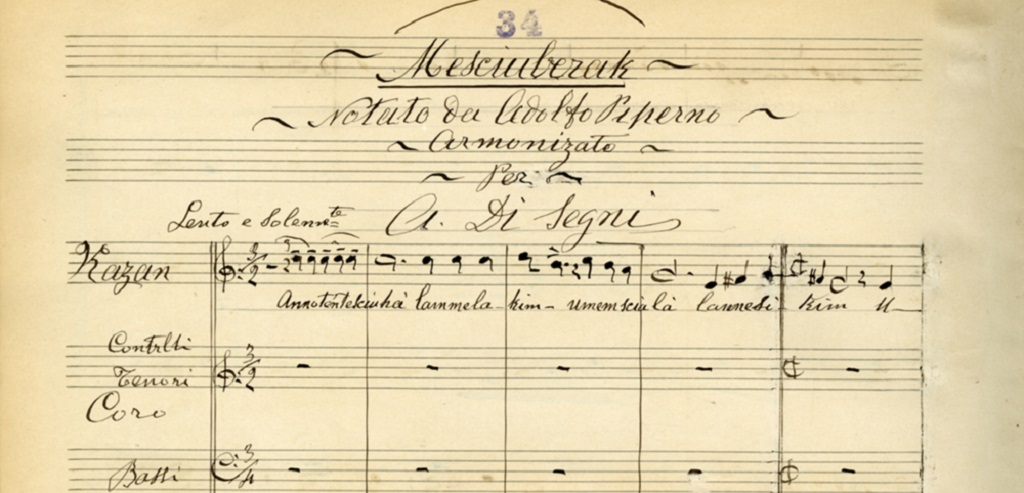 34
Mesciuberak
Notato da Adolfo Piperno
Armonizzato
Per
Lento e Solenne
A. Di Segni
Kazan
3/2
Annotentesciuhà lammela-kim-umemsciulà lannesi-kim U-
Contralti
Tenori
3/2
Coro
Bassi
3/4